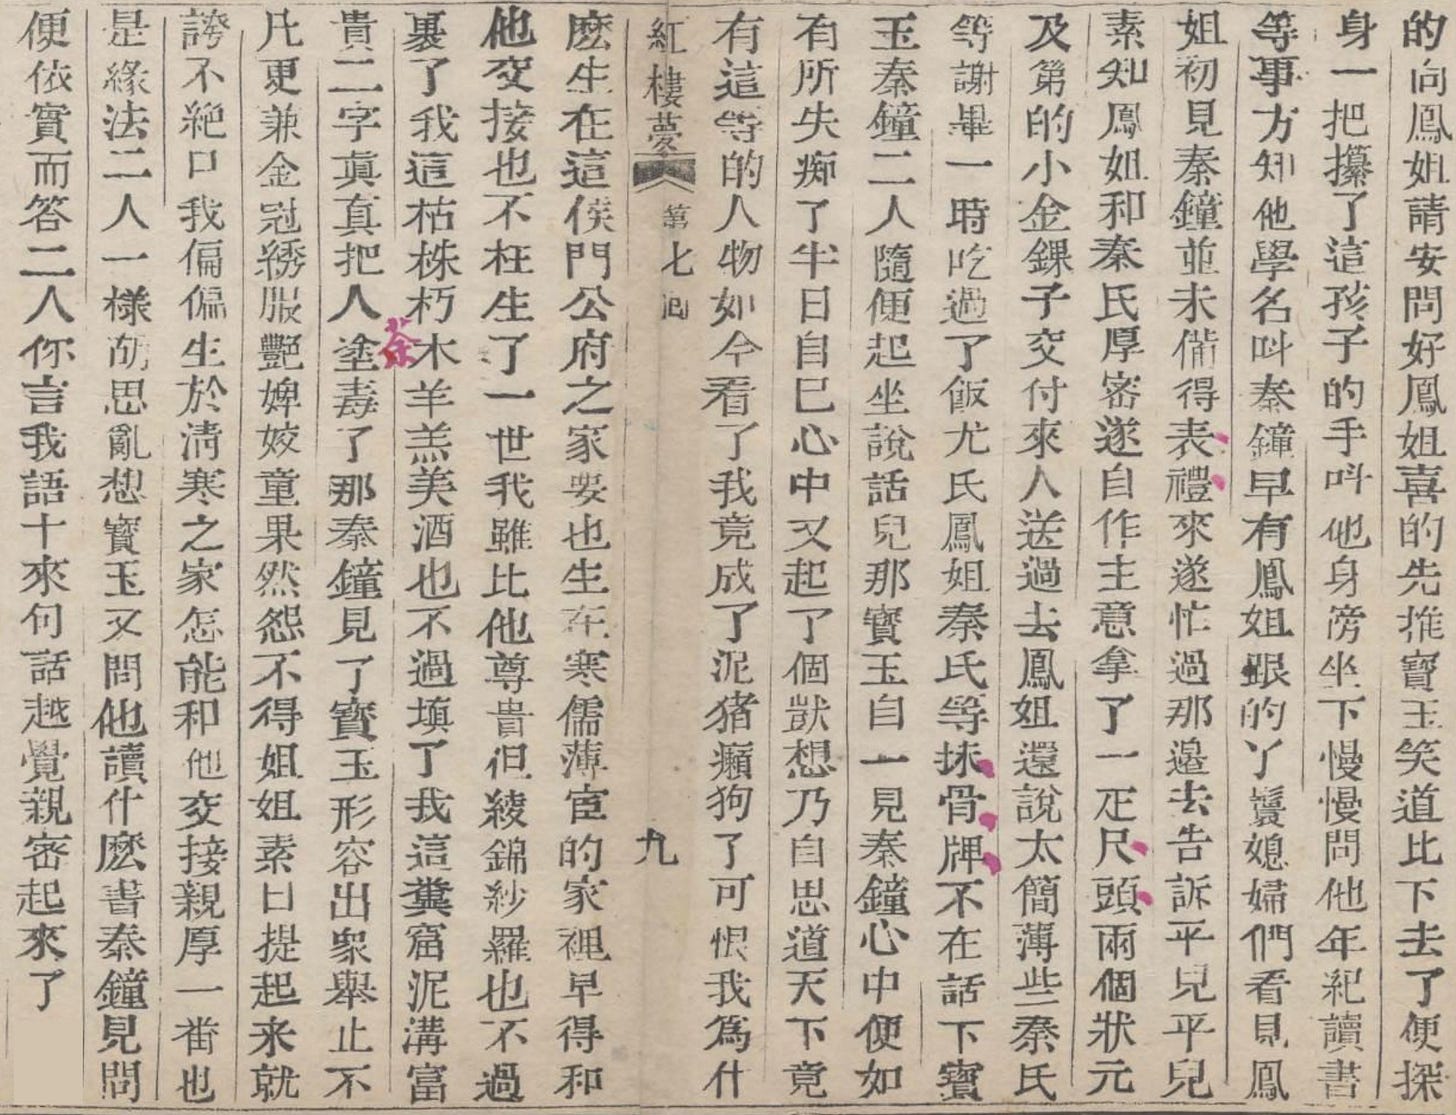 的向鳳姐請安問好鳳姐喜的先推寶玉笑道比下去了便探
身一把攥了這孩子的手呌他身傍坐下慢慢問他年紀讀書
等事方知他學名呌秦鐘早有鳳姐跟的丫鬟媳婦們看見鳳
姐初見秦鐘並未俻得表禮來遂忙過那邉去告訴平兒平兒
素知鳳姐和秦氏厚宻遂自作主意拿了一疋尺頭兩個狀元
及第的小金錁子交付來人送過去鳳姐還說太簡薄些秦氏
等謝畢一時吃過了飯尤氏鳳姐秦氏等抹骨牌不在話下寶
玉秦鐘二人隨便起坐說話兒那寶玉自一見秦鐘心中便如
有所失痴了半日自巳心中又起了個獃想乃自思道天下竟
有這等的人物如今看了我竟成了泥猪癩狗了可恨我爲什
紅樓夢 第七囘 九
麽生在這侯門公府之家要也生在寒儒薄宦的家裡早得和
他交接也不枉生了一世我雖比他尊貴但綾錦紗羅也不過
裹了我這枯株朽木羊羔美酒也不過塡了我這糞窟泥溝富
貴二字眞真把人塗毒了那秦鐘見了寶玉形容出衆舉止不
荼
凡更兼金冠綉服艷婢姣童果然怨不得姐姐素日提起来就
誇不絶口我偏偏生於清寒之家怎能和他交接親厚一番也
是緣法二人一樣胡思亂想寶玉又問他讀什麽書秦鐘見問
便依實而答二人你言我語十來句話越覺親宻起來了